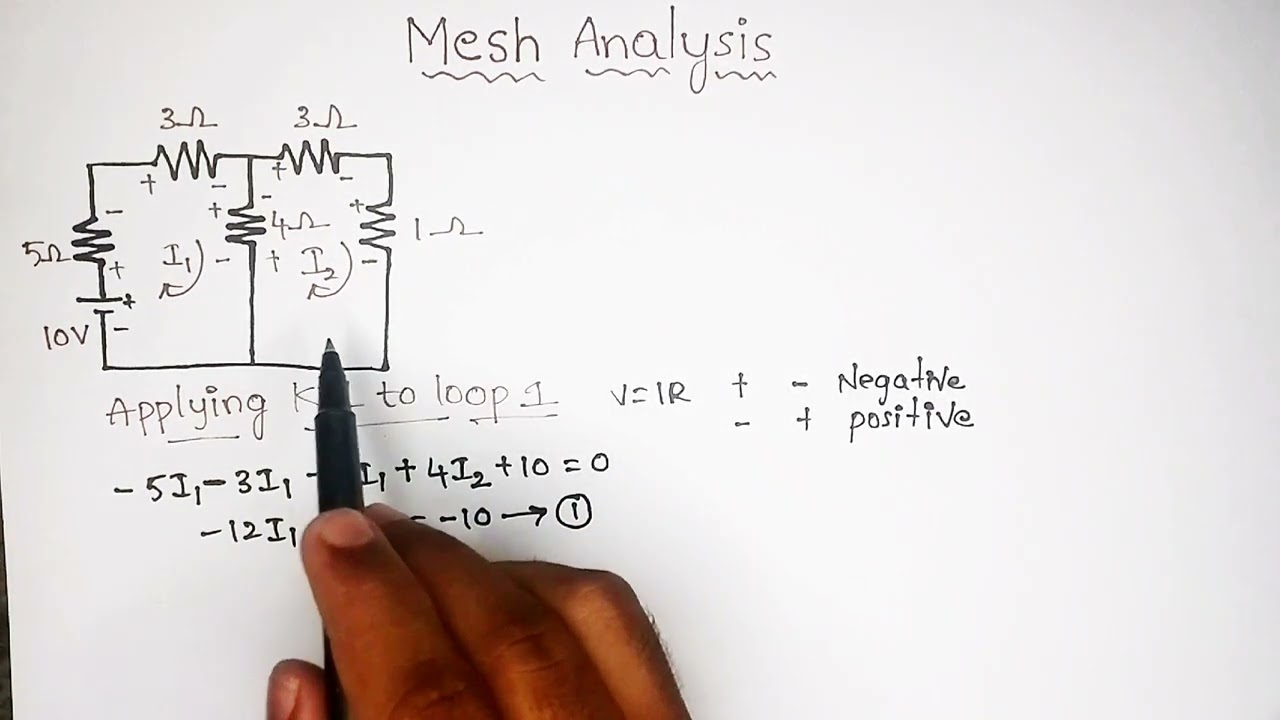 Mesh Analysis
3Ω 3Ω
+ - + -
- + - +
5Ω 4Ω 1Ω
+ I₁ - + I₂ -
+
10V -
Applying to loop 1 V=IR + - Negative
- + positive
-5I₁-3I₁ - I₁+4I₂+10=0
-12I₁ -10→①